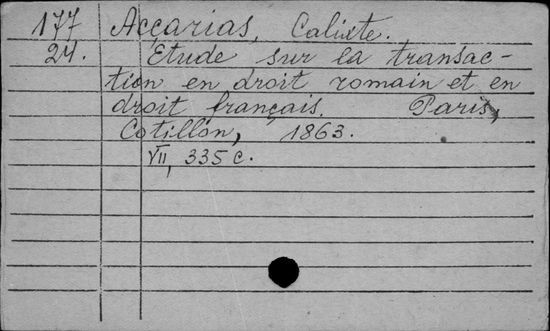 177 Accarias, Calixte.
24. Étude sur la transac-
tion en droit romain et en
droit français. Paris,
Cotillon, 1863.
VII, 335 c.